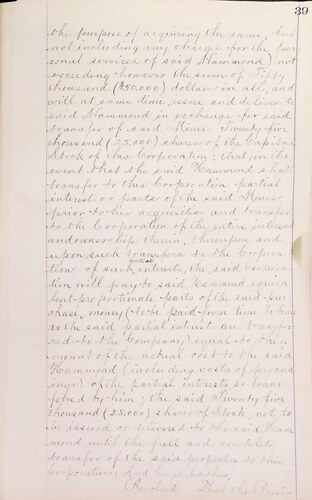 39
the purpose of acquiring the same, but
not including any charge for the per-
sonal services of said Hammond) not
exceeding however the sum of Fifty
thousand ($50,000) dollars in all, and
will at same time, issue and deliver to
said Hammond in exchange for said
transfer of said Mines Twenty five
thousand (25,000) shares of the Capital
Stock of this Corporation; that in the
event that the said Hammond shall
transfer to this Corporation partial
interest or parts of the said Mines
prior to her acquisition and transfer
to the Corporation of the entire interest
and ownership therein, thereupon and
upon such transfer to the Corpora-
tion of such partial interests, the said Corpora-
tion will pay to said Hammond equiva-
lent proportionate parts of the said pur-
chase money (to be paid from time to time
as the said partial interests are transfer-
red to the Company) equal to the
amount of the actual cost to the said
Hammond (including costs of proceed-
ings) of the partial interests so trans-
fered by him; the said Twenty five
thousand (25,000) shares of Stock, not to
be issued or delivered to the said Ham-
mond until the full and complete
transfer of the said properties to this
Corporation; And be it further
Resolved, That the